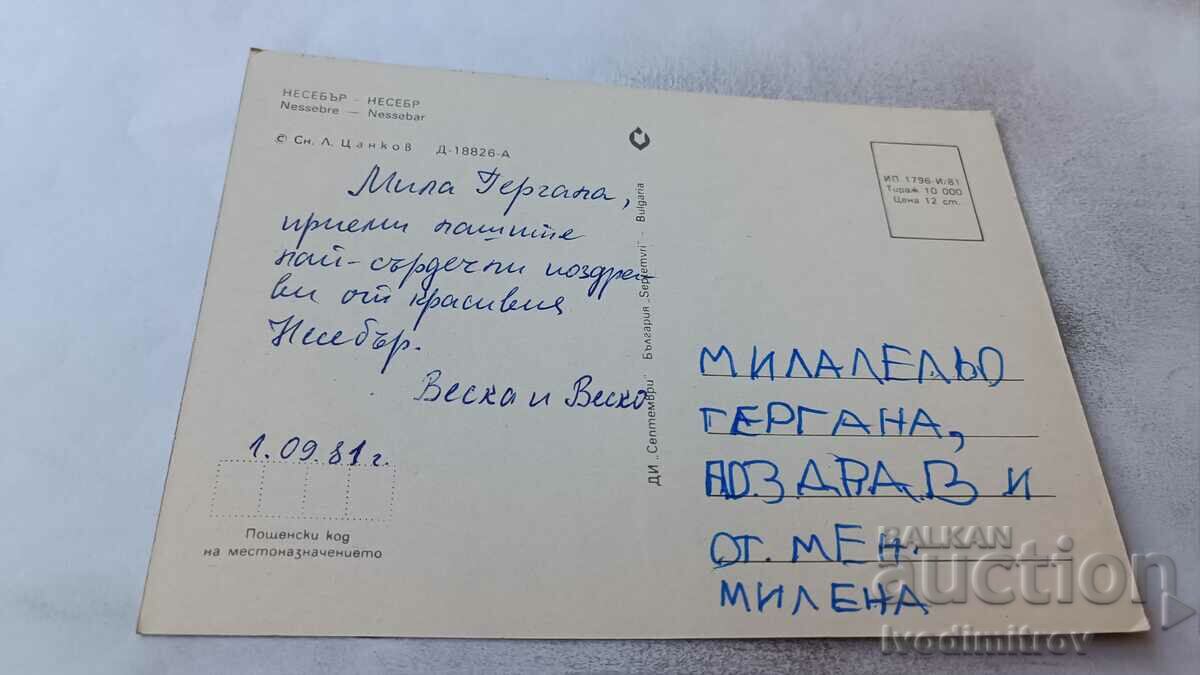 НЕСЕБЪР - НЕСЕБР
Nessebre — Nessebar
© Сн. Л. Цанков Д-18826-А
Мила Гергана,
приеми нашите
най-сърдечни поздра-
ви от красивия
Несебър.
Веска и Веско
1.09.81 г.
Пощенски код
на местоназначението
ДИ „Септември" България „Septemvri" - Bulgaria
ИП 1796-И/81
Тираж 10 000
Цена 12 ст.
МИЛАЛЕЛЬО
ГЕРГАНА,
ПОЗДРАВ И
ОТ. МЕН.
МИЛЕНА
BALKAN
auction
ivodimitrov